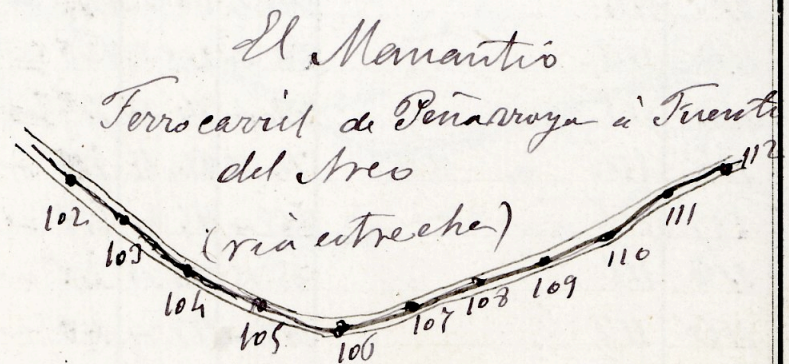 El Manantío
Ferrocarril de Peñarroya á Fuente
del Arco
(via estrecha)
102
103
104
105
106
107
108
109
110
111
112